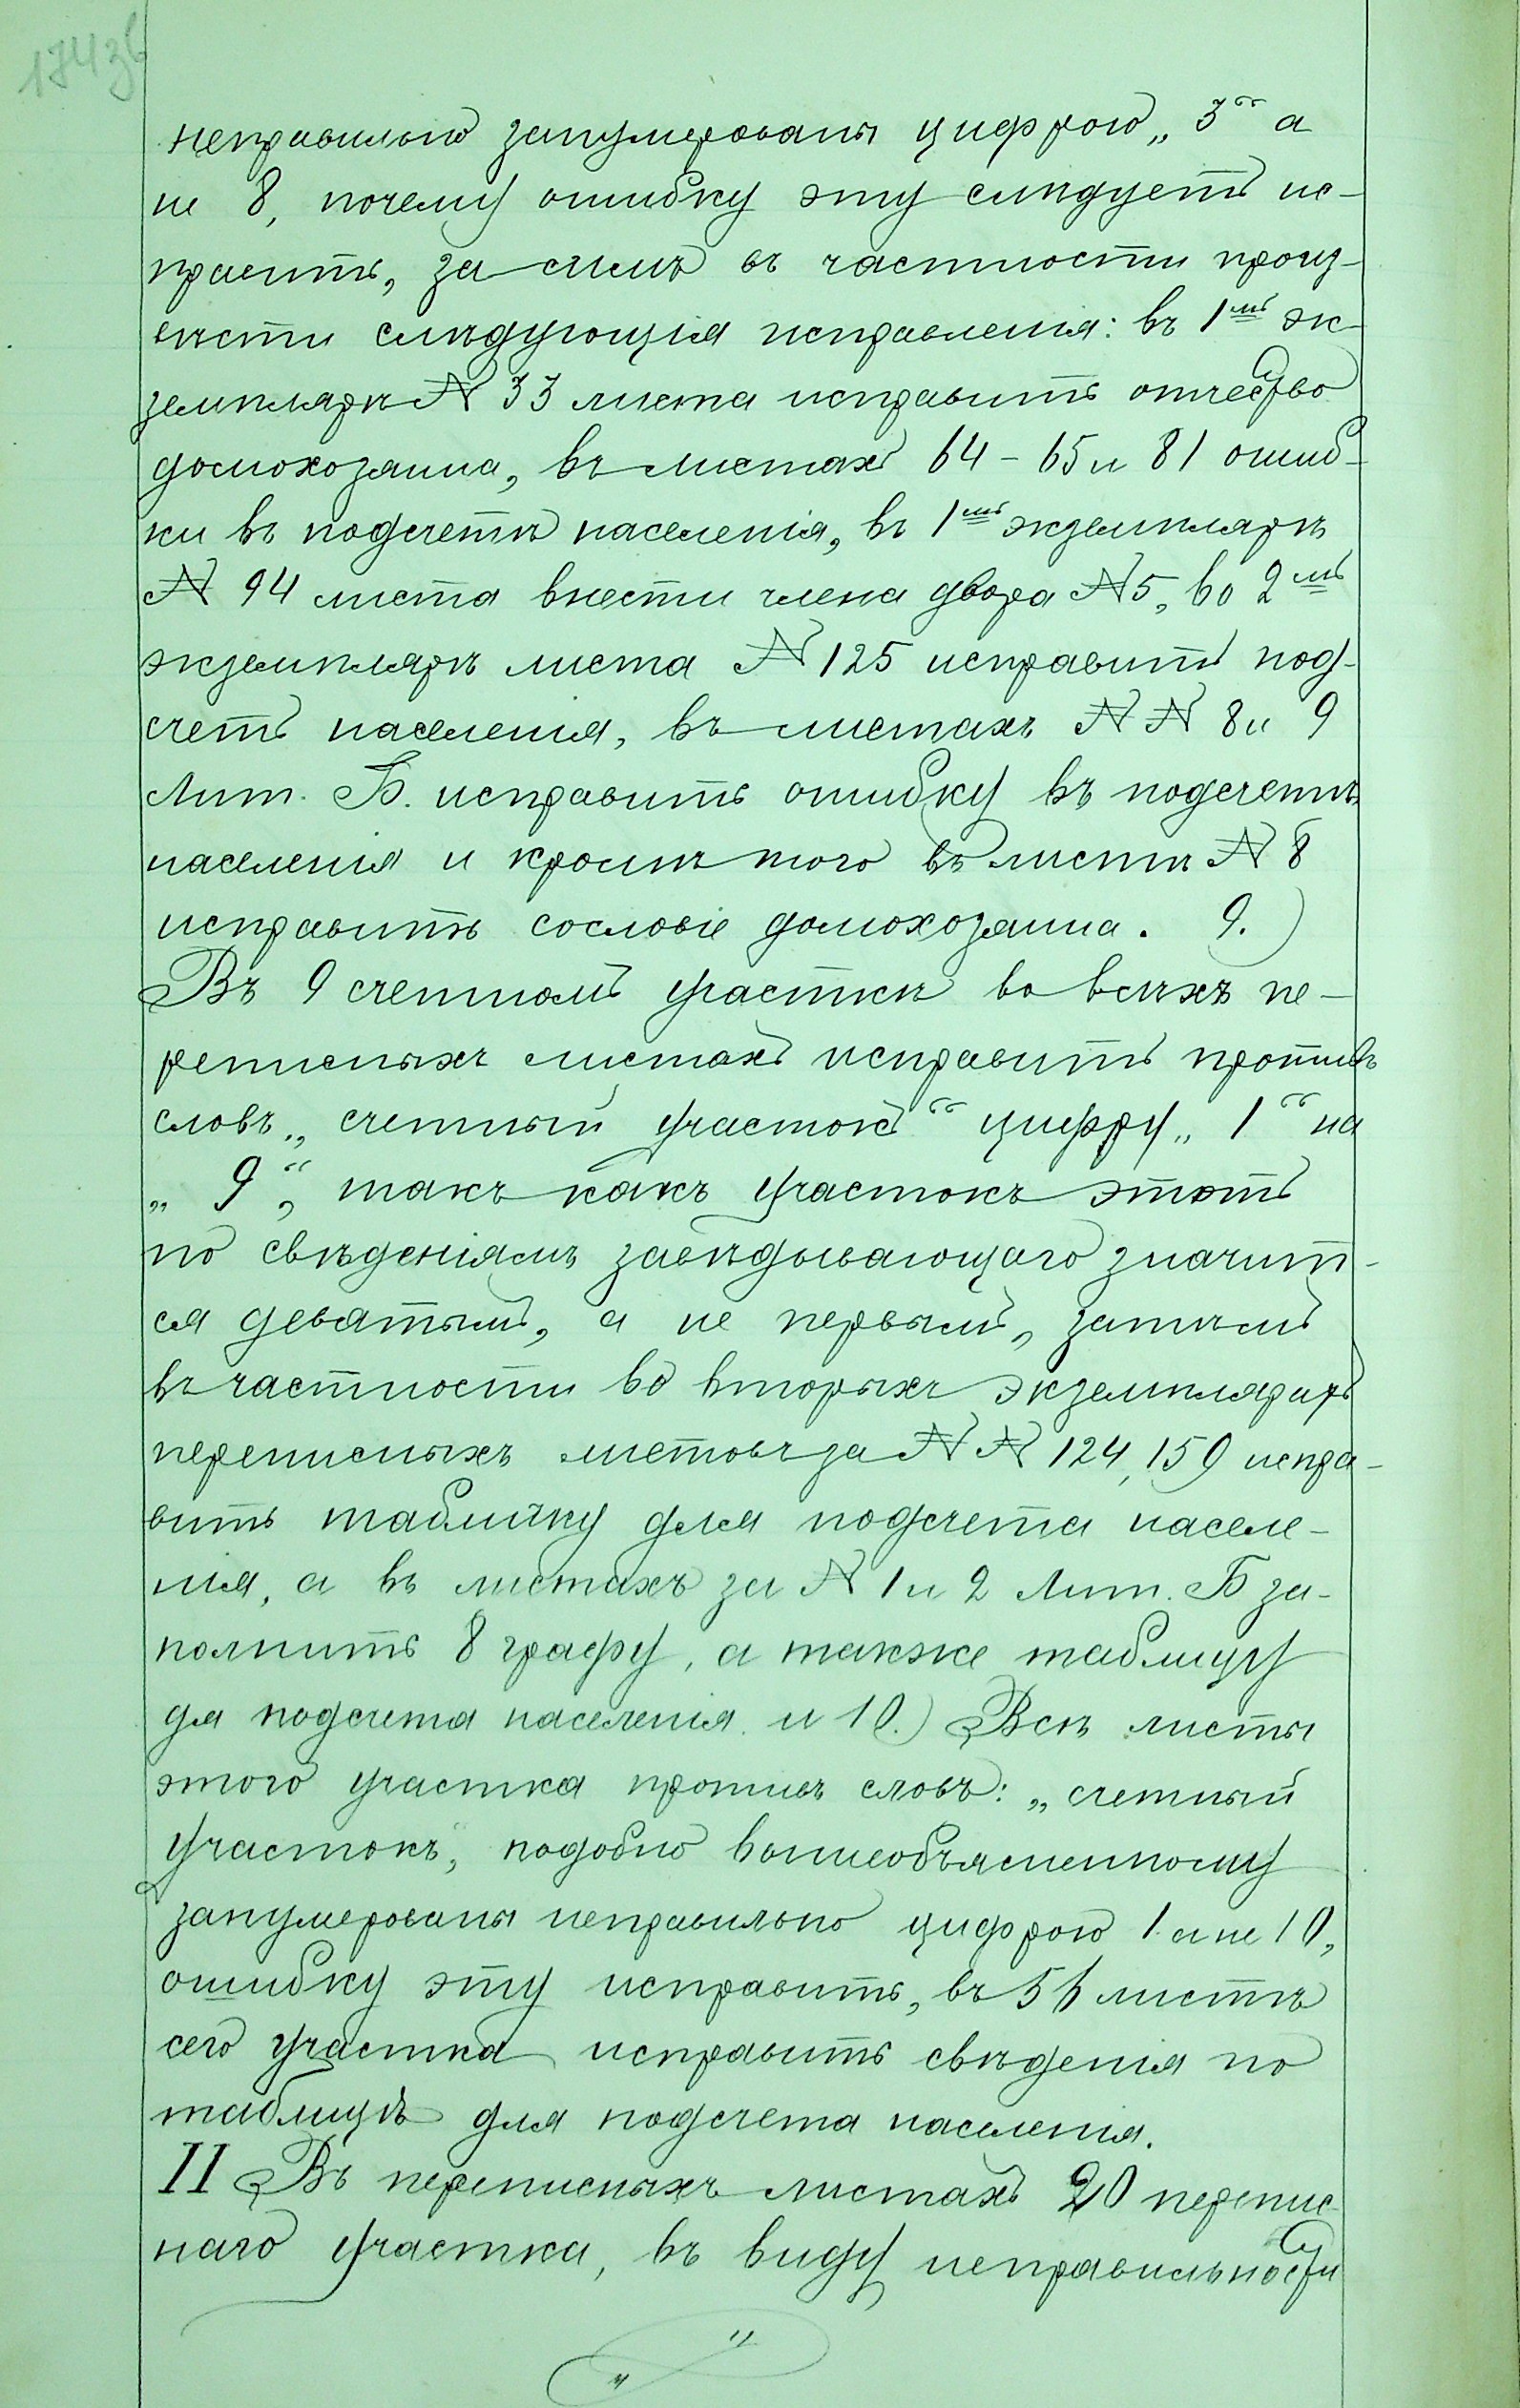 174зб
неправильно занумерованы цифрою „3“ а
не 8, почему ошибку эту слѣдуетъ ис-
править, за симъ въ частности произ-
вѣсти слѣдующія исправленія: въ 1мъ эк-
земплярѣ № 33 листа исправить отчество
домохозяина, въ листахъ 64-65 и 81 ошиб-
ки въ подсчетѣ населенія, въ 1мъ экземплярѣ
№ 94 листа внести члена двора № 5, во 2мъ
экземплярѣ листа № 125 исправить под-
счетъ населенія, въ листахъ №№ 8 и 9
Лит. Б. исправить ошибку въ подсчетѣ
населенія и кромѣ того въ листѣ № 8
исправить сословіе домохозяина. 9.)
Въ 9 счетномъ участкѣ во всѣхъ пе-
реписныхъ листахъ исправить противъ
словъ „счетный участокъ“ цифру „1“ на
„9“, такъ какъ участокъ этотъ
по свѣденіямъ завѣдывающаго значит-
ся девятымъ, а не первымъ, затѣмъ
въ частности во вторыхъ экземплярахъ
переписныхъ листовъ за №№ 124, 159 испра-
вить табличку для подсчета населе-
нія, а въ листахъ за № 1 и 2 Лит. Б за-
полнить 8 графу, а также таблицу
для подсчета населенія и 10.) Всѣ листы
этого участка противъ словъ: „счетный
участокъ“, подобно вышеобъясненному
занумерованы неправильно цифрою 1 а не 10,
ошибку эту исправить, въ 56 листѣ
сего участка исправить свѣденія по
таблицѣ для подсчета населенія.
II Въ переписныхъ листахъ 20 перепис-
наго участка, въ виду неправильности